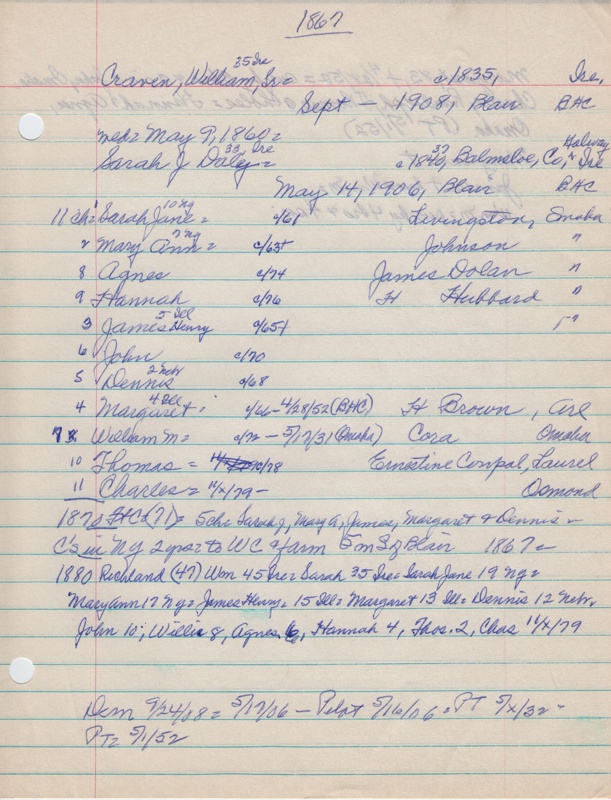 1867
35 Ire
Craven, William, Sr= c1835, Ire,
Sept – 1908, Blair BHC
med= May 9, 1860=
33, Ire 37 Galway
Sarah J Daley= c1840, Balmeloe, Co, Ire
May 14, 1906, Blair BHC
10 ny
11 ch= 1 Sarah Jane= c/61 Livingston, Omaha
7 ny
2 Mary Ann= c/63+ Johnson "
8 Agnes c/74 James Dolan "
9 Hannah c/76 H Hubbard "
5 Ill
3 James Henry c/65+ "
6 John c/70
2 Nebr
5 Dennis c/68
4 Ill
4 Margaret c/66–4/28/52 (BHC) H Brown, Arl
7 William M= c/72 – 5/17/31 (Omaha) Cora Omaha
10 Thomas = c/78 Ernestine Conpal, Laurel
11 Charles = 11/x/79– Osmond
1870 FtC (71)= 5 ch= Sarah J, Mary A, James, Margaret & Dennis –
C's in Ny 2 yrs to WC & farm 5 m S of Blair 1867=
1880 Richland (47) Wm 45 Ire= Sarah 35 Ire= Sarah Jane 19 Ny=
Mary Ann 17 Ny= James Henry= 15 Ill= Margaret 13 Ill= Dennis 12 Nebr,
John 10; Willie 8, Agnes 6, Hannah 4, Thos. 2, Chas 11/x/79
Dem 9/24/08= 5/17/06 – Pilot 5/16/06= PT 5/x/32–
PT= 5/1/52